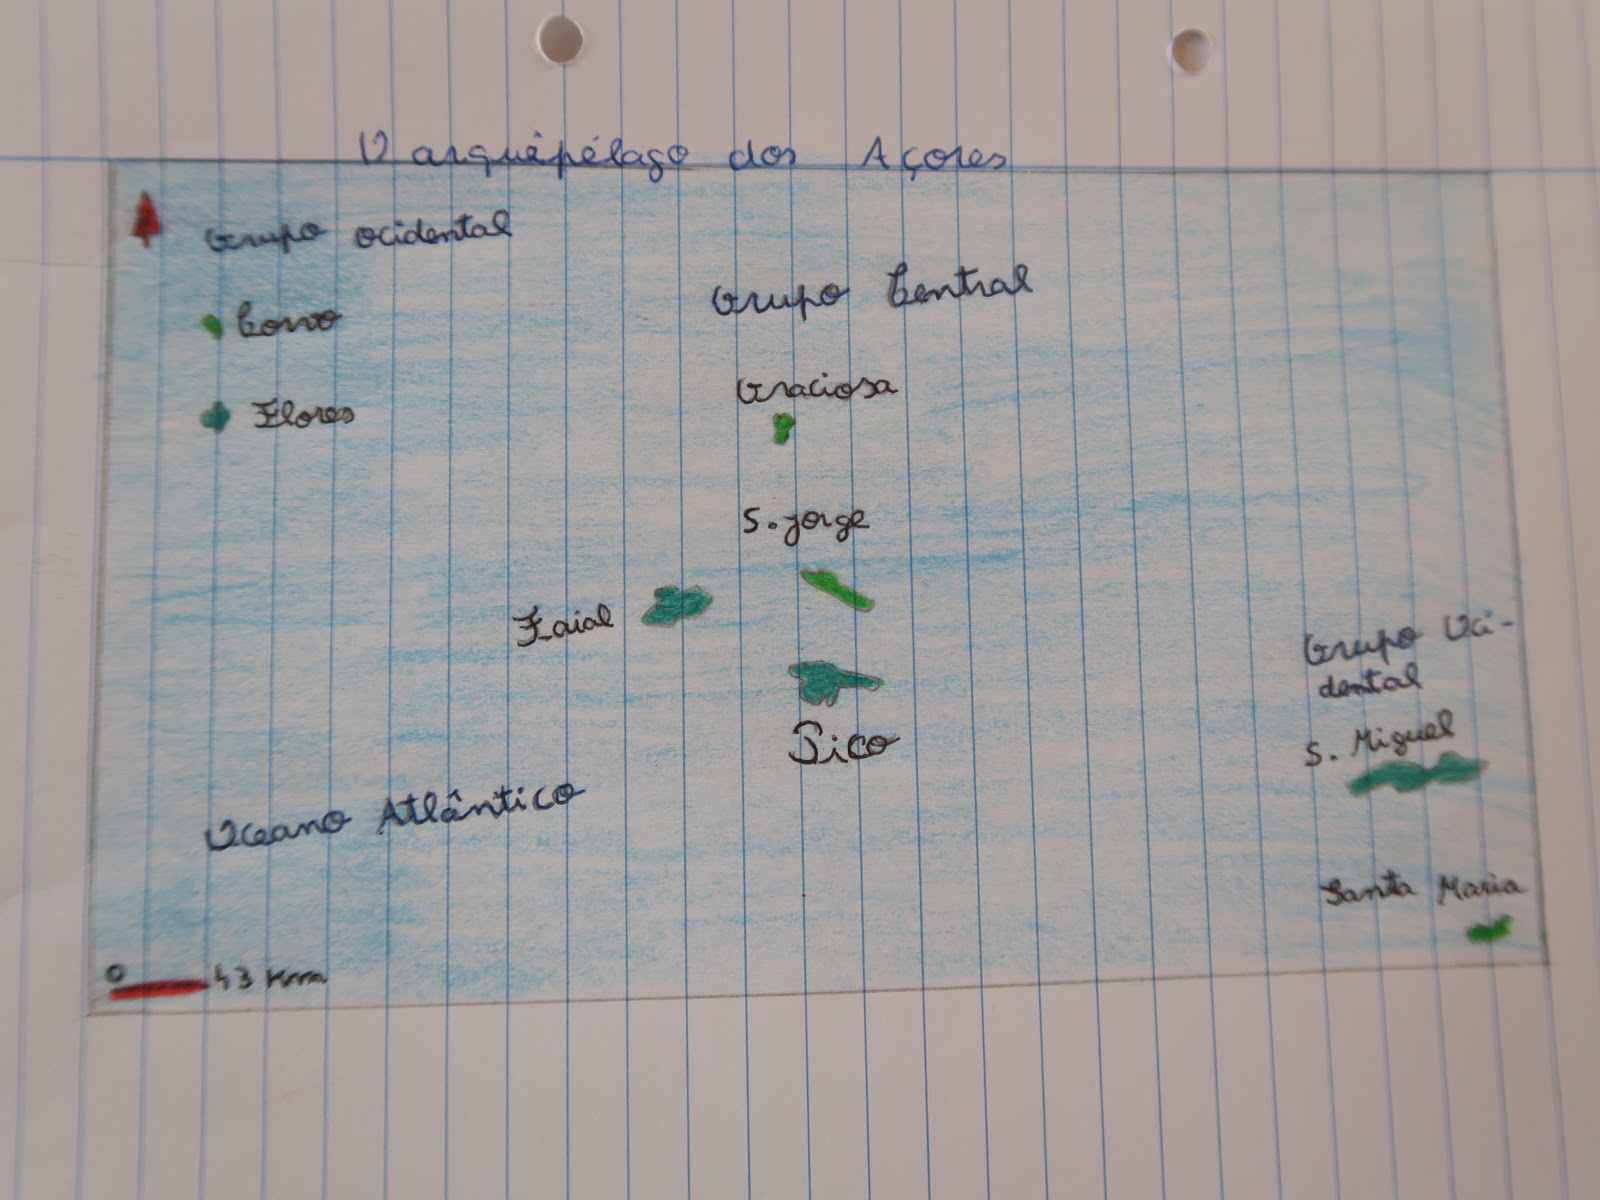 O arquipélago dos Açores
Grupo ocidental
Corvo
Flores
Grupo Central
Graciosa
S. Jorge
Faial
Pico
Grupo Oci-
dental
S. Miguel
Santa Maria
Oceano Atlântico
0 43 Km